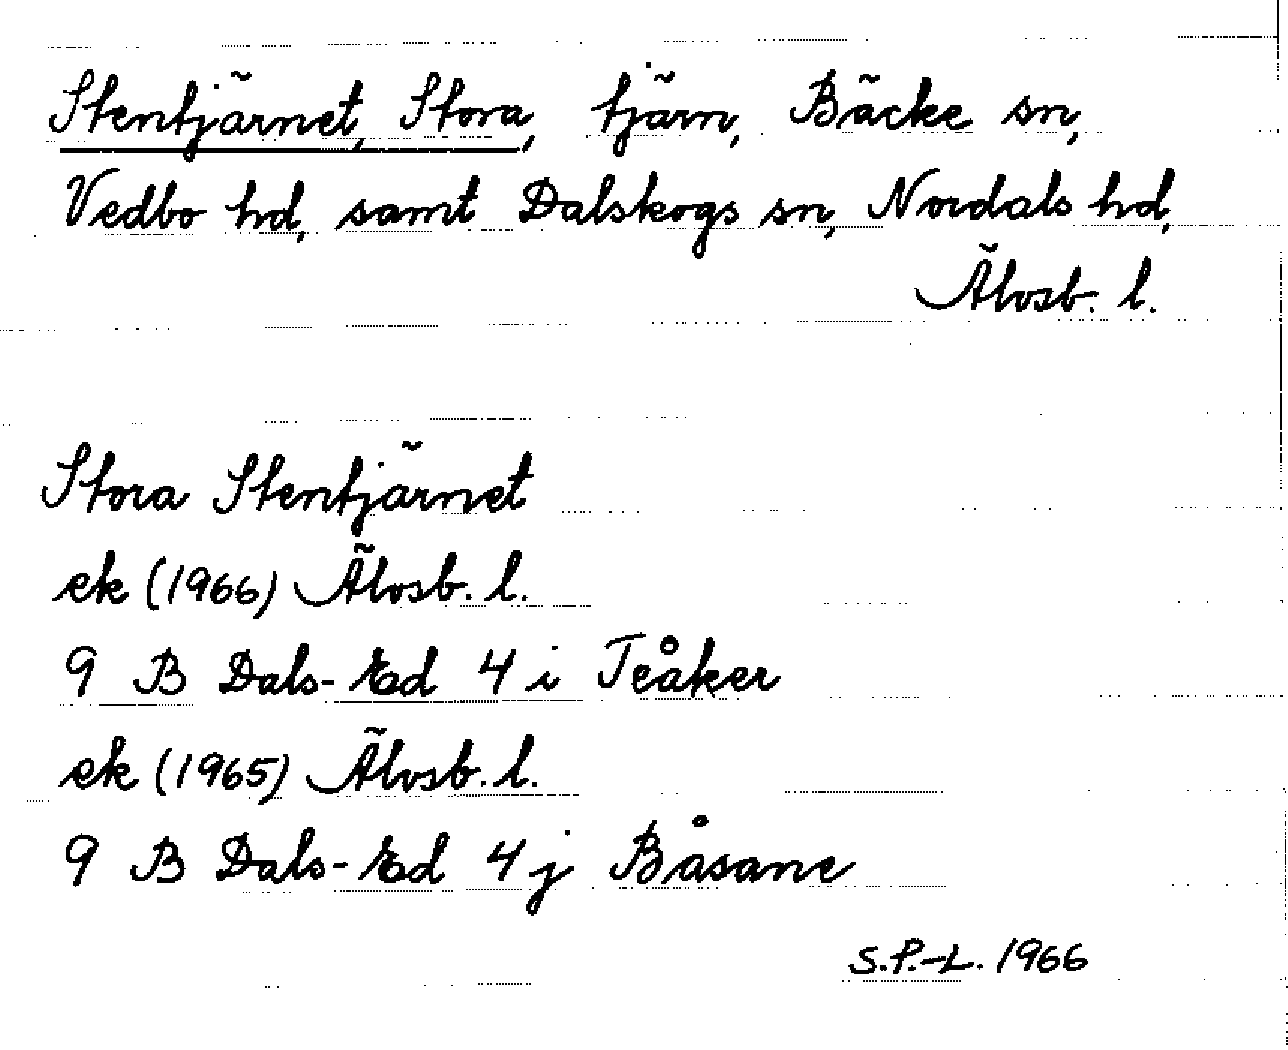 Stentjärnet, Stora, tjärn, Bäcke sn,
Vedbo hd, samt Dalskogs sn, Nordals hd,
Älvsb. l.
Stora Stentjärnet
ek (1966) Älvsb. l.
9 B Dals-Ed 4 i Teåker
ek (1965) Älvsb. l.
9 B Dals-Ed 4 j Båsane
S.P.-L. 1966